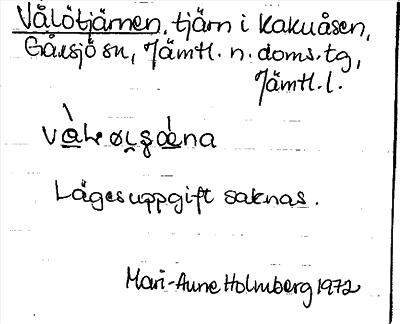 Vålötjärnen, tjärn i Kakuåsen,
Gåxsjö sn, Jämtl. n. doms. tg,
Jämtl. l.
Lägesuppgift saknas.
Mari-Anne Holmberg 1972